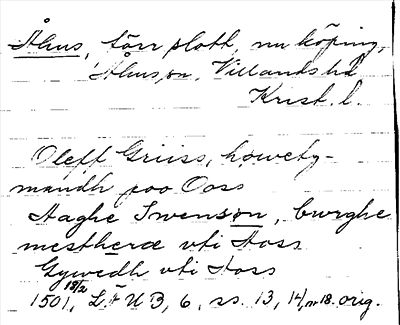 Åhus, förr slott, nu köping,
Åhus sn, Villands hd
Krist. l.
Oleff Griiss, høwetz-
mandh poo Ooss
Aaghe Swensøn, burghe
mestheræ vti Aoss
Gywedh vti Aoss
1501 18/2, LÄUB, 6, ss. 13, 14, nr 18. orig.